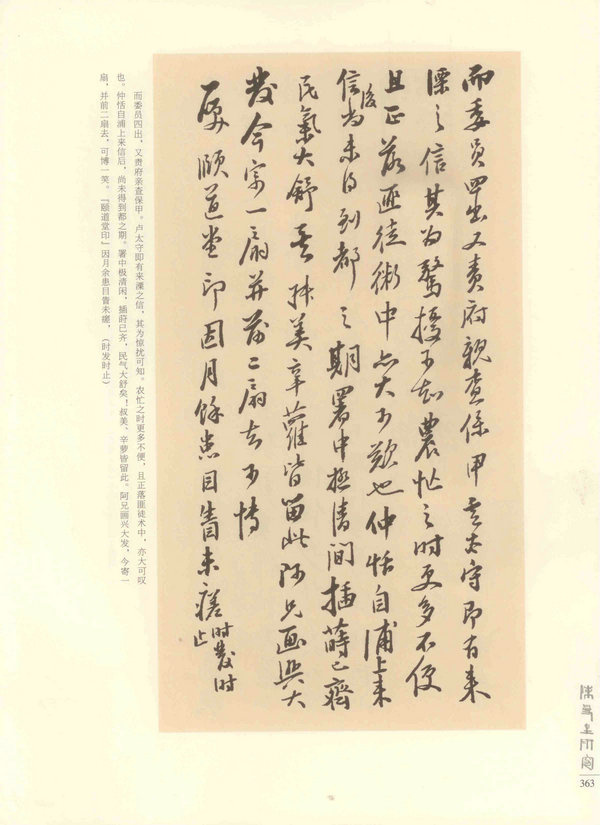 而委員四出又貴府親查保甲盧太守即有来
溧之信其为驚擾可知農忙之时更多不便
且正落匪徒術中亦大可歎也仲恬自浦上来
信後尚未得到都之期署中極清閒插蒔已齊
民氣大舒矣叔美辛蘿皆留此阿兄画興大
發今寄一扇并前二扇去可博
一笑頤道堂印因月餘患目眚未瘥时發时
止
而委员四出，又贵府亲查保甲。卢太守即有来溧之信，其为惊扰可知。农忙之时更多不便，且正落匪徒术中，亦大可叹
也。仲恬自浦上来信后，尚未得到都之期。署中极清闲，插莳已齐，民气大舒矣！叔美、辛萝皆留此。阿兄画兴大发，今寄一
扇，并前二扇去，可博一笑。『颐道堂印』因月余患目眚未瘥，（时发时止）
363